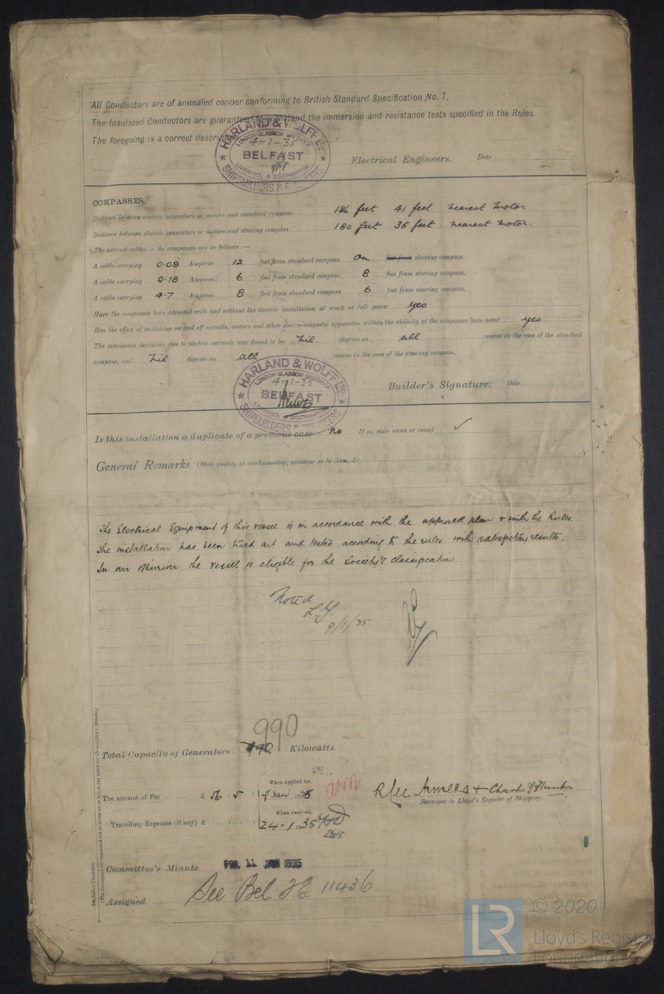 All Conductors are of annealed copper conforming to British Standard Specification No. 7.
The Insulated Conductors are guaranteed to withstand the immersion and resistance tests specified in the Rules.
The foregoing is a correct
HARLAND & WOLFF LTD
LONDON GLASGOW
4-1-35
BELFAST
LIVERPOOL & SOUTHAMPTON
SHIPBUILDERS & ENGINEERS
Electrical Engineers. Date
COMPASSES.
Distance between electric generators or motors and standard compass 186 feet 41 feet nearest motor
Distance between electric generators or motors and steering compass 180 feet 35 feet nearest motor.
The nearest cables to the compasses are as follows:—
A cable carrying 0.09 Amperes 12 feet from standard compass On feet from steering compass.
A cable carrying 0.18 Amperes 6 feet from standard compass 8 feet from steering compass.
A cable carrying 4.7 Amperes 8 feet from standard compass 6 feet from steering compass.
Have the compasses been adjusted with and without the electric installation at work at full power yes
Has the effect of switching on and off circuits, motors and other electro-magnetic apparatus within the vicinity of the compasses been noted yes
The maximum deviation due to electric currents was found to be Nil degrees on all course in the case of the standard
compass, and Nil degrees on all course in the case of the steering compass.
HARLAND & WOLFF LTD
LONDON GLASGOW
4-1-35
BELFAST
LIVERPOOL & SOUTHAMPTON
SHIPBUILDERS & ENGINEERS
Builder's Signature. Date
Is this installation a duplicate of a previous case No If so, state name of vessel ✓
General Remarks (State quality of workmanship, opinions as to class, &c.
The Electrical Equipment of this vessel is in accordance with the approved plan & with the Rules.
The installation has been tried out and tested according to the rules with satisfactory results.
In our opinion the vessel is eligible for the Society's classification
Noted
9/1/35
990
Total Capacity of Generators Kilowatts.
The amount of Fee £ 56 : 5 : When applied for, Jan 35
Travelling Expenses (if any) £ When received, 24.1.35
Surveyor to Lloyd's Register of Shipping.
Committee's Minute FRI. 11 JAN 1935
Assigned See Bel J.E. 11436
LR © 2020
Lloyd's Register
Foundation